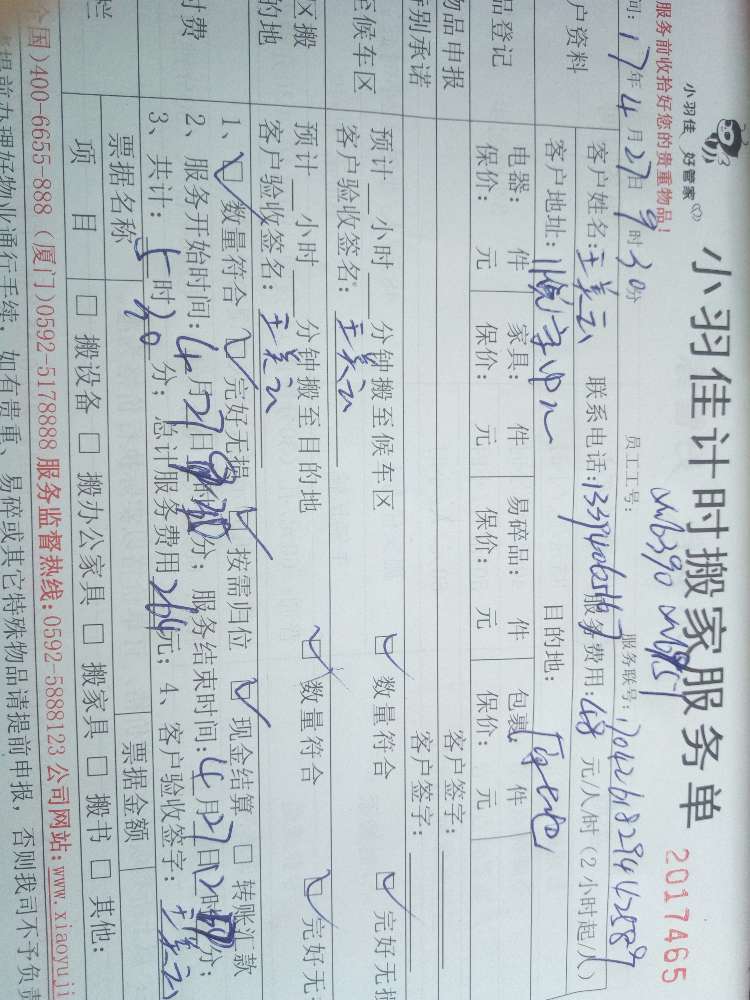 小羽佳 好管家
小羽佳计时搬家服务单
2017465
服务前收拾好您的贵重物品!
员工工号:
服务联号:
间: 17年4月27日9时30分
户资料
客户姓名: 王美云 联系电话: 服务费用:48 元/人/时(2小时起/人)
客户地址: 目的地:
品登记
电器: 件 家具: 件 易碎品: 件 包裹: 件
保价: 元 保价: 元 保价: 元 保价: 元
物品申报
客户签字:
特别承诺
客户签字:
搬至候车区
预计 小时 分钟搬至候车区 数量符合 完好无损
客户验收签名: 王美云
区搬
的地
预计 小时 分钟搬至目的地 数量符合 完好无
客户验收签名: 王美云
付费
1、 数量符合 完好无损 按需归位 现金结算 转账汇款
2、服务开始时间: 4月27日 分; 服务结束时间: 4月27日12时 分;
3、共计: 5时 20分; 总计服务费用264元; 4、客户验收签字: 王美云
栏
票据名称 票据金额
项 目 搬设备 搬办公家具 搬家具 搬书 其他:
全国)400-6655-888 (厦门)0592-5178888 服务监督热线:0592-5888123 公司网站:www.xiaoyuji
提前办理好物业通行手续, 如有贵重、易碎或其它特殊物品请提前申报, 否则我司不予负责